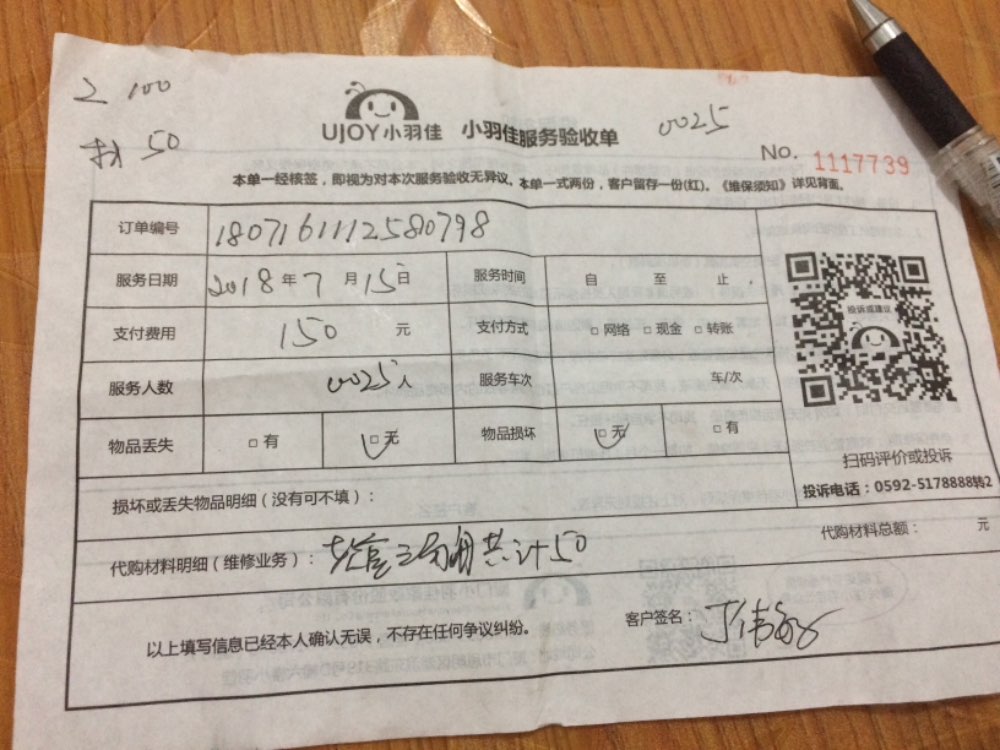 100
50
UJOY小羽佳 小羽佳服务验收单
0025
No. 1117739
本单一经核签，即视为对本次服务验收无异议。本单一式两份，客户留存一份(红)。《维保须知》详见背面。
订单编号 18071611112580798
服务日期 2018年7月15日 服务时间 自 至 止
支付费用 150 元 支付方式 □网络 □现金 □转账
服务人数 0025人 服务车次 车/次
物品丢失 □有 □无 物品损坏 □无 □有
投诉或建议
扫码评价或投诉
投诉电话：0592-5178888转2
损坏或丢失物品明细（没有可不填）：
代购材料明细（维修业务）： 共计50 代购材料总额： 元
以上填写信息已经本人确认无误，不存在任何争议纠纷。 客户签名：